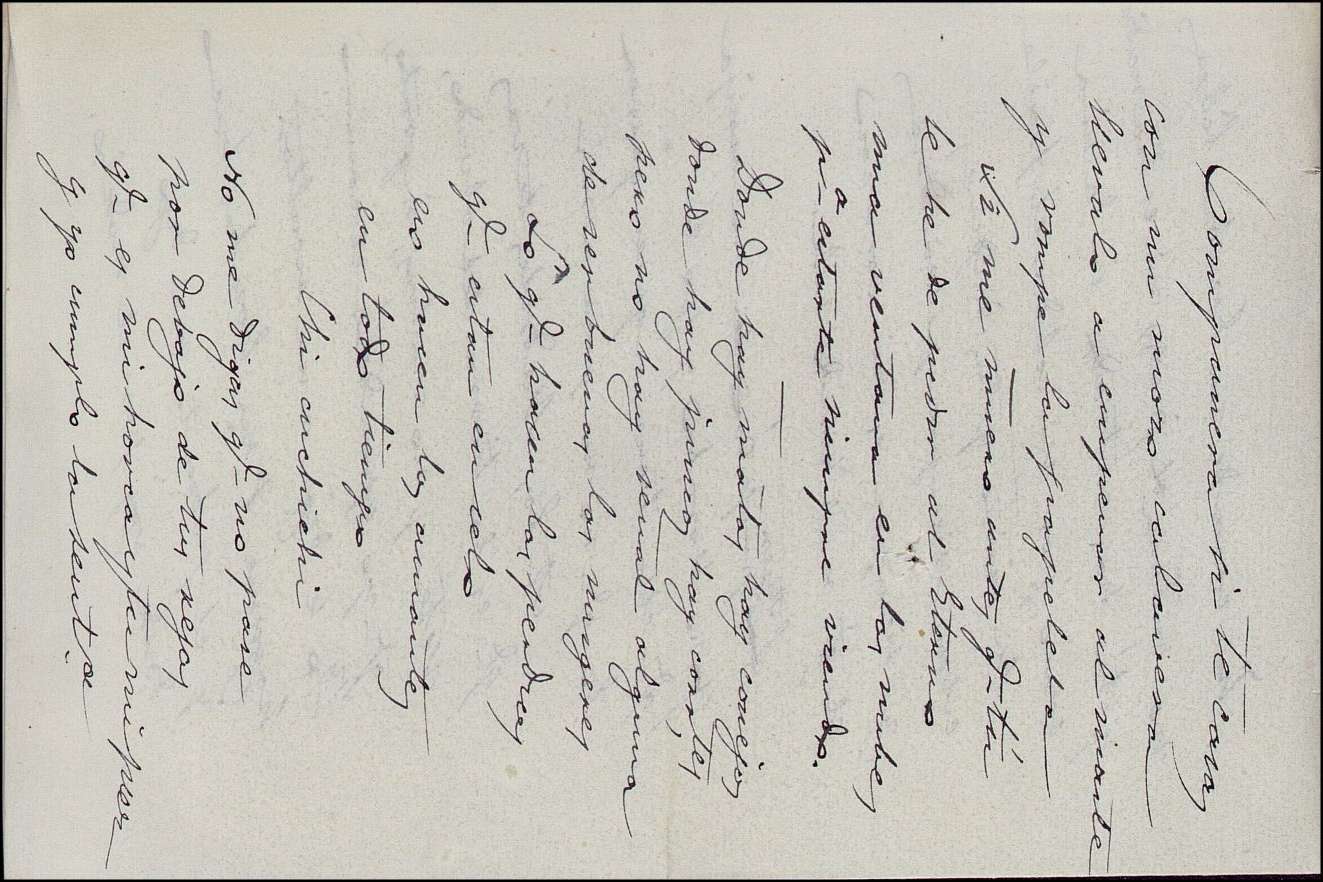 Compañera si te casas
con un mozo calavera
llevalo a empeñar al monte
y rompe la papeleta
Si me muero antes q- tú
le he de pedir al Eterno
una ventana en las nubes
pa- estarte siempre viendo.
Donde hay matas hay conejos
donde hay juncos hay corrtes
pero no hay señal alguna
de ser buenas las mugeres
Lo q- hacen las piedras
q- estan en el
eso hacen los amantes
en todo tiempo
Chi cuchichi
No me digas q- no pase
por debajo de tus rejas
q- es mi horca y fui mi peor
y yo cumplo la sentxa